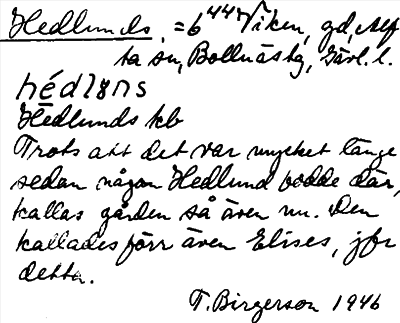 Hedlunds, =6⁴⁴ Viken, gd, Alf
ta sn, Bollnäs tg, Gävl. l.
hédluns
Hedlunds kb
Trots att det var mycket länge
sedan någon Hedlund bodde där,
kallas gården så även nu. Den
kallades förr även Elises, jfr
detta.
T. Birgerson 1946